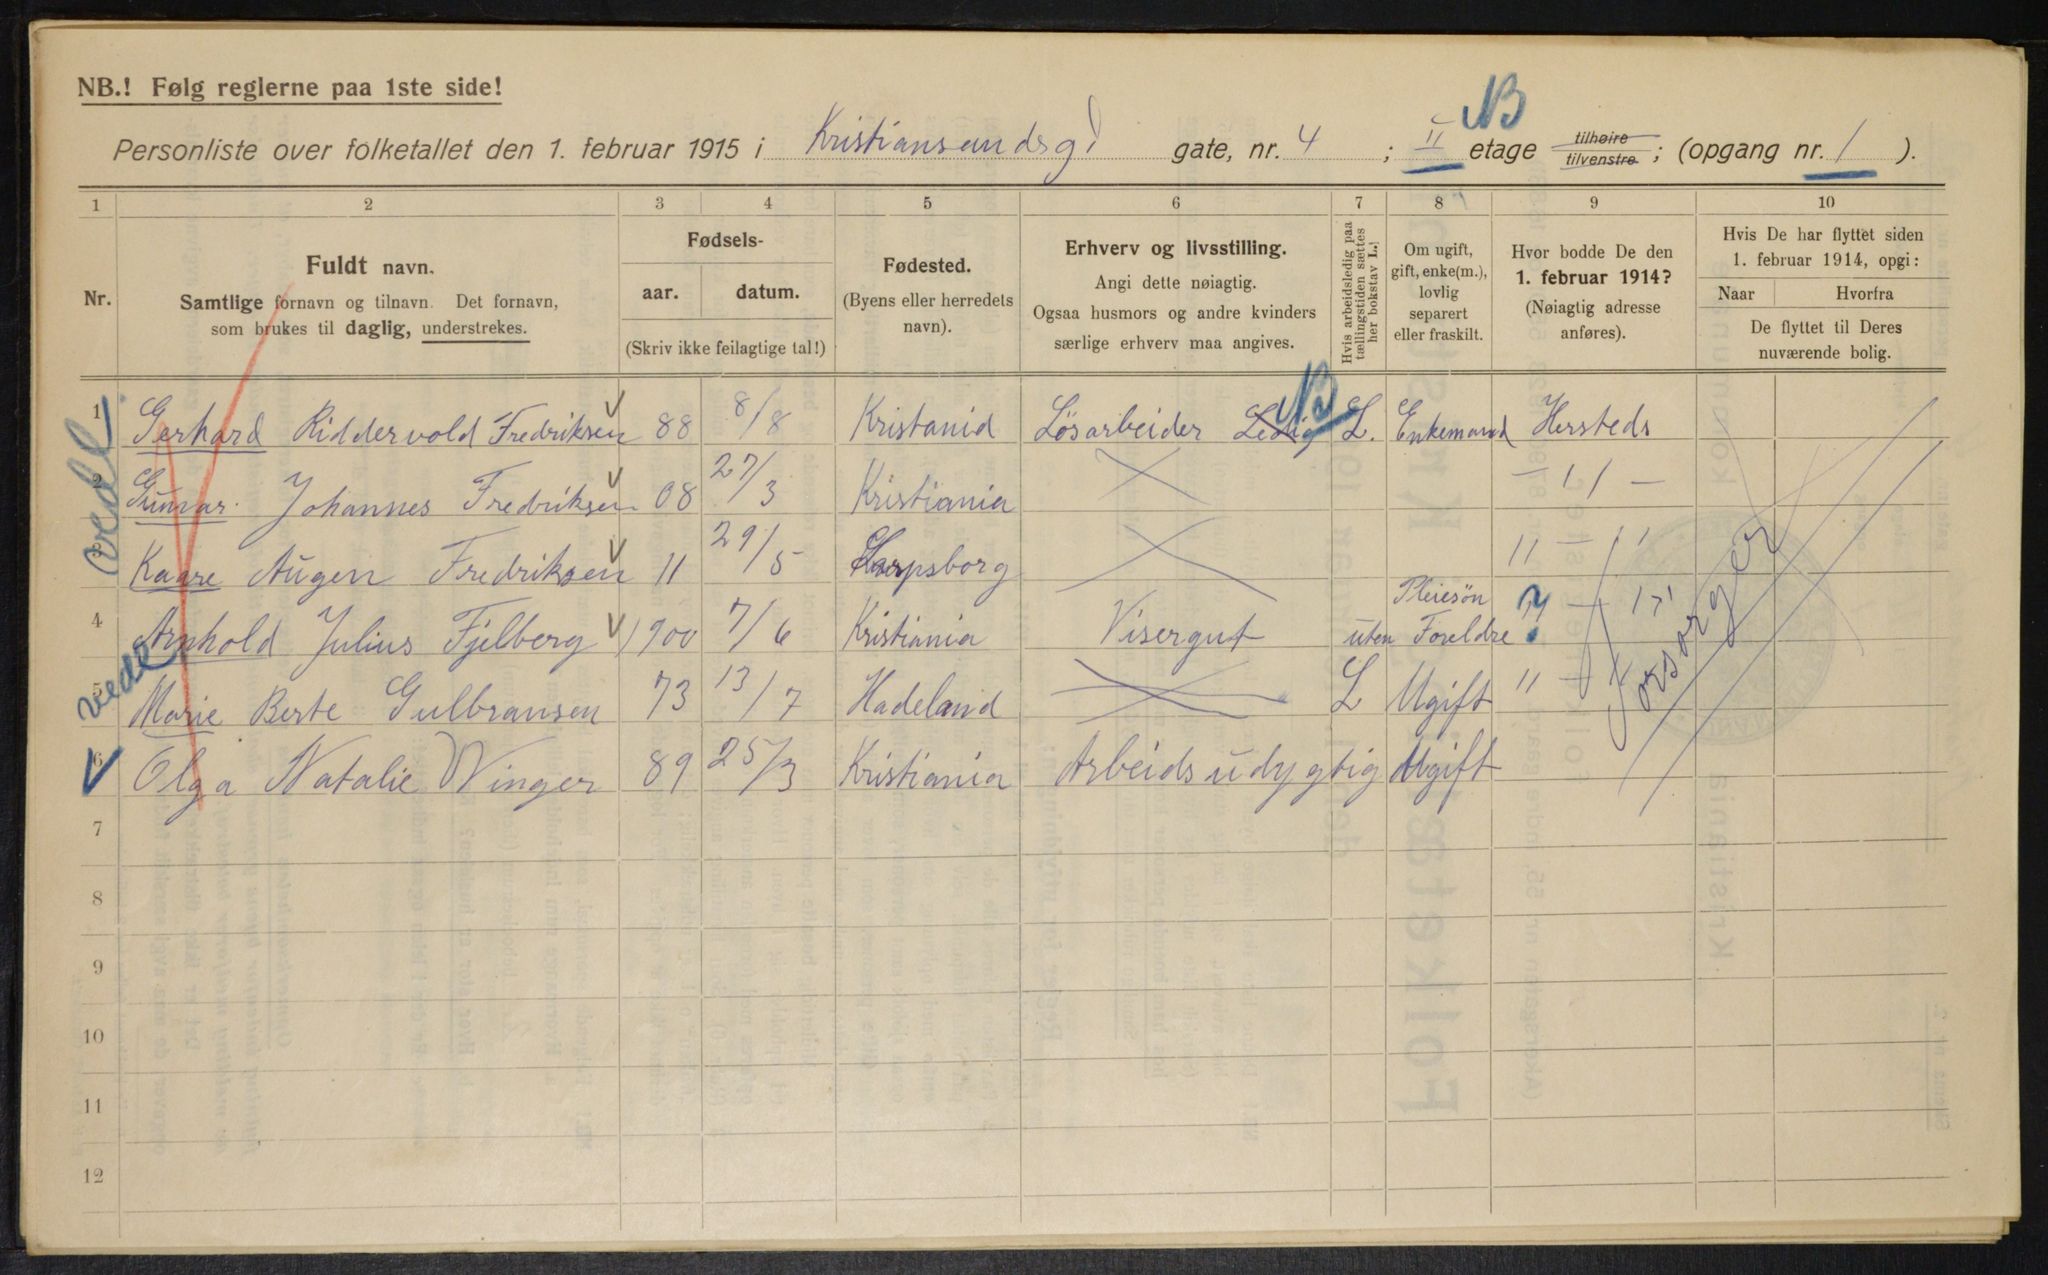 NB.! Følg reglerne paa 1ste side!
NB
Personliste over folketallet den 1. februar 1915 i Kristiansandsg. gate, nr. 4 ; II etage tilhøire tilvenstre ; (opgang nr. 1 ).
1 2 3 4 5 6 7 8 9 10
Nr.
Fuldt navn.
Samtlige fornavn og tilnavn. Det fornavn,
som brukes til daglig, understrekes.
Fødsels-
aar. datum.
(Skriv ikke feilagtige tal!)
Fødested.
(Byens eller herredets
navn).
Erhverv og livsstilling.
Angi dette nøiagtig.
Ogsaa husmors og andre kvinders
særlige erhverv maa angives.
Hvis arbeidsledig paa
tællingstiden sættes
her bokstav L.!
Om ugift,
gift, enke(m.),
lovlig
separert
eller fraskilt.
Hvor bodde De den
1. februar 1914?
(Nøiagtig adresse
anføres).
Hvis De har flyttet siden
1. februar 1914, opgi:
Naar Hvorfra
De flyttet til Deres
nuværende bolig.
1 Gerhard Riddervold Fredriksen 88 8/8 Kristanid Løsarbeider Ledig NB L. Enkemand Hersteds
2 Gunnar Johannes Fredriksen 08 27/3 Kristiania — 11 —
3 Kaare Augen Fredriksen 11 29/5 Sarpsborg 11 — 11
4 Arnhold Julius Fjelberg 1900 7/6 Kristiania Visergut Pleiesøn uten Foreldre ?
5 Marie Berte Gulbransen 73 13/7 Hadeland L Ugift 11 — 11
6 Olga Natalie Winger 89 25/3 Kristiania Arbeidsudygtig Ugift
Forsorger
7
8
9
10
11
12